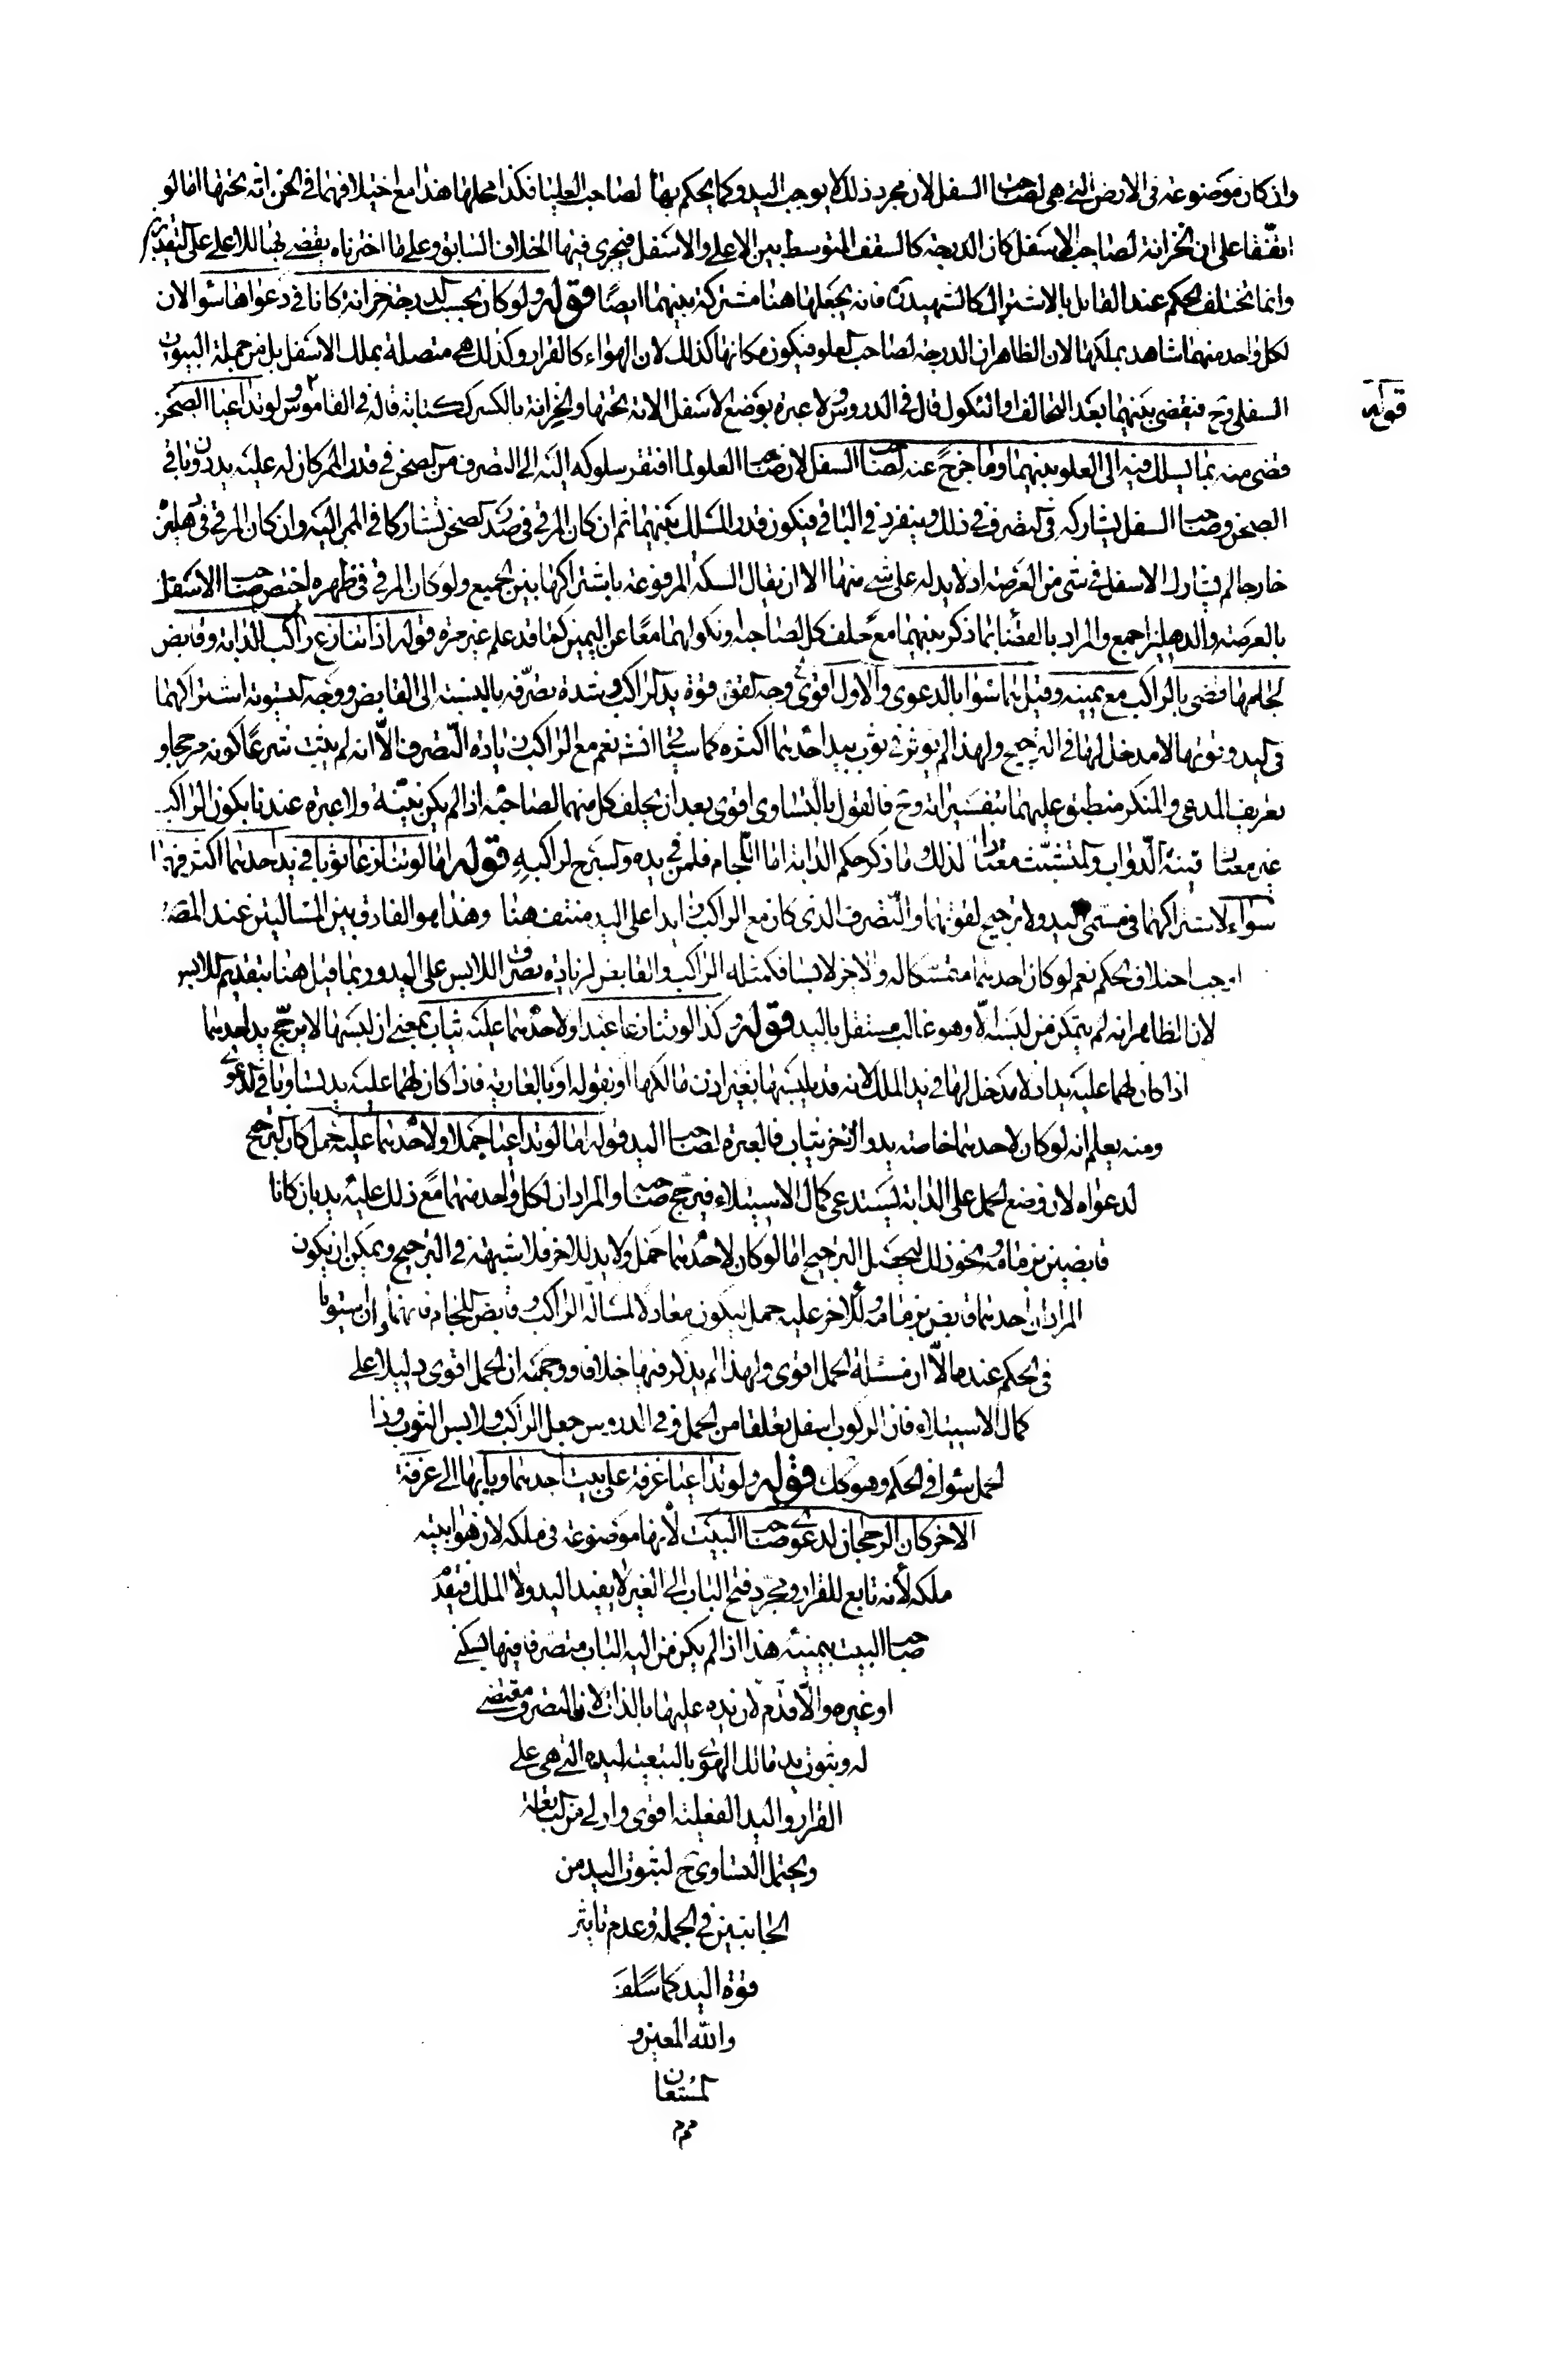 وان كان موضوعه في الارض التي هي لصاحب السفل لان مجرد ذلك لا يوجب اليد وكما يحكم بها لصاحب العليا فكذا محلها هذا مع اختلافهما في الخزانة تحتها اما لو
اتفقا على ان الخزانة لصاحب الاسفل كان الدرجة كالسقف المتوسط بين الاعلى والاسفل فيجرى فيها الخلاف السابق وعلى ما اخترناه يقضى بها للاعلى على التقديرين
وانما يختلف الحكم عند القايل بالاشتراك كالشهيد فانه يجعلها هنا مشتركة بينهما ايضا قوله ولو كان تحت الدرجة خزانة كانا في دعواها سواء لان
لكل واحد منهما شاهد بملكها لان الظاهر ان الدرجة لصاحب العلو فيكون مكانها كذلك لان الهواء كالقرار وكذلك هي متصلة بملك الاسفل بل من جملة البيوت
السفلى وح فيقضى بينهما بعد التحالف او النكول قال في الدروس ولا عبرة بوضع الاسفل الاته تحتها والخزانة بالكسر ككتابة قاله في القاموس قوله ولو تداعيا الصحن
قوله
قضى منه بما يسلك فيه الى العلو بينهما وما خرج عنه لصاحب السفل لان صاحب العلو لما افتقر سلوكه اليه الى التصرف من الصحن في قدر الممر كان له عليه يد دون باقي
الصحن وصاحب السفل يشاركه في التصرف في ذلك وينفرد في الباقي فيكون قدر المسلك بينهما ثم ان كان المرقى في صدر الصحن تشاركا في الممر اليه وان كان المرقى في دهليز
خارجا لم يشارك الاسفل في شئ من العرصة اذ لا يد له على شئ منها الا ان يقال السكة المرفوعة باشتراكها بين الجميع ولو كان المرقى في ظهره اختص صاحب الاسفل
بالعرصة والدهليز اجمع والمراد بالقضاء بما ذكر بينهما مع حلف كل لصاحبه او نكولهما معا عن اليمين كما قد علم غير مرة قوله اذا تنازع راكب الدابة وقابض
لجامها قضى بالراكب مع يمينه وقيل هما سواء بالدعوى والاول اقوى وجه قوة يد الراكب وشدة تصرفه بالنسبة الى القابض ووجه التسوية اشتراكهما
في اليد وقوتها لا مدخل لها في الترجيح ولهذا لم يؤثر في ثوب بيد احدهما اكثره كما سيأتي نعم مع الراكب زيادة التصرف الا انه لم يثبت شرعا كونه مرجحا و
تعريف المدعى والمنكر منطبق عليهما بتفسيراته وح فالقول بالتساوى اقوى بعد ان يحلف كل منهما لصاحبه اذا لم يكن بينة ولا عبرة عندنا بكون الراكب
غير معتاد قنية الدواب والمتشبث معتادا لذلك وما ذكر حكم الدابة اما اللجام فلمن في يده والسرج لراكبه قوله اما لو تنازعا ثوبا في يد احدهما اكثره فهما
سواء لاشتراكهما في مسمى اليد ولا ترجيح لقوتهما والتصرف الذى كان مع الراكب زايدا على اليد منتف هنا وهذا هو الفارق بين المسالتين عند المص
اوجب اختلاف الحكم نعم لو كان احدهما متمسكا له والاخر لابسا فكمثله الراكب والقابض لزيادة تصرف اللابس على اليد وربما قيل هنا بتقديم اللابس
لان الظاهر انه لم يتمكن من لبسه الا وهو غالب مستقل باليد قوله وكذا لو تنازعا عبدا ولاحدهما عليه ثياب بمعنى ان لبسها لا يرجح يد احدهما
اذا كان لهما عليه يد اذ لا مدخل لها في يد الملك لانه قد يلبسها بغير اذن مالكها او بقوله او بالعارية فاذا كان لهما عليه يد تساويا في الدعوى
ومنه يعلم انه لو كان لاحدهما خاصة يد والاخر ثياب فالعبرة لصاحب اليد قوله اما لو تداعيا جملا ولاحدهما عليه حمل كان الترجيح
لدعواه لان وضع الحمل على الدابة يستدعى كمال الاستيلاء فيرجح صاحبه والمراد ان لكل واحد منهما مع ذلك عليه يد بان كانا
قابضين بزمامه ونحو ذلك ليحصل الترجيح اما لو كان لاحدهما حمل ولا يد للاخر فلا شبهة في الترجيح ويمكن ان يكون
المراد ان احدهما قابض بزمامه وللاخر عليه حمل ليكون معادلا لمسالة الراكب وقابض اللجام فانهما وان استويا
في الحكم عندها الا ان مسئلة الحمل اقوى ولهذا لم يذكر فيها خلافا ووجهه ان الحمل اقوى دليلا على
كمال الاستيلاء فان الركوب اسهل تعلقا من الحمل وفي الدروس جعل الراكب ولابس الثوب وذا
الحمل سواء في الحكم وهو كك قوله ولو تداعيا غرفة على بيت احدهما وبابها الى غرفة
الاخر كان الرجحان لدعوى صاحب البيت لانها موضوعة في ملكه لان هواء بيته
ملكه لانه تابع للقرار ومجرد فتح الباب الى الغير لا يفيد اليد ولا الملك فيقدم
صاحب البيت بيمينه هذا اذا لم يكن من اليه الباب متصرفا فيها بسكنى
او غيره والا قدم لان يده عليها بالذات لانها التصرف مقتضى
له وثبوت يد مالك الهوى بالتبعية ليده التي هي على
القرار واليد الفعلية اقوى واولى من التابعة
ويحتمل التساوى ح لثبوت اليد من
الجانبين في الجملة وعدم تاثير
قوة اليد كما سلف
والله المعين و
المستعان
مم